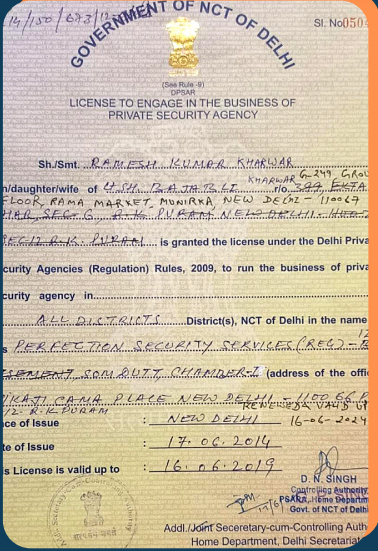 14/150/673/12
GOVERNMENT OF NCT OF DELHI
Sl. No 050
(See Rule -9)
DPSAR
LICENSE TO ENGAGE IN THE BUSINESS OF
PRIVATE SECURITY AGENCY
Sh./Smt. RAMESH KUMAR KHARWAR
KHARWAR G-249, GRO
n/daughter/wife of LT. SH. RAJABLI r/o. 399, EKTA
FLOOR, RAMA MARKET, MUNIRKA, NEW DELHI - 110067
SEC-6 R.K. PURAM NEW DELHI
SEC-12 R.K. PURAM is granted the license under the Delhi Priva
curity Agencies (Regulation) Rules, 2009, to run the business of priva
curity agency in
ALL DISTRICTS District(s), NCT of Delhi in the name
s PERFECTION SECURITY SERVICES (REG)
SEMENT SOM DUTT, CHAMBER-I (address of the offic
IKAJI CAMA PLACE NEW DELHI - 1100 66
12- R.K PURAM RENEWED & VALID UP
ce of Issue : NEW DELHI 16-06-2024
te of Issue : 17.06.2014
is License is valid up to : 16.06.2019
D. N. SINGH
Controlling Authority
PSARA, Home Departm
Govt. of NCT of Delhi
Addl./Joint Seceretary-cum-Controlling Auth
Home Department, Delhi Secretariat